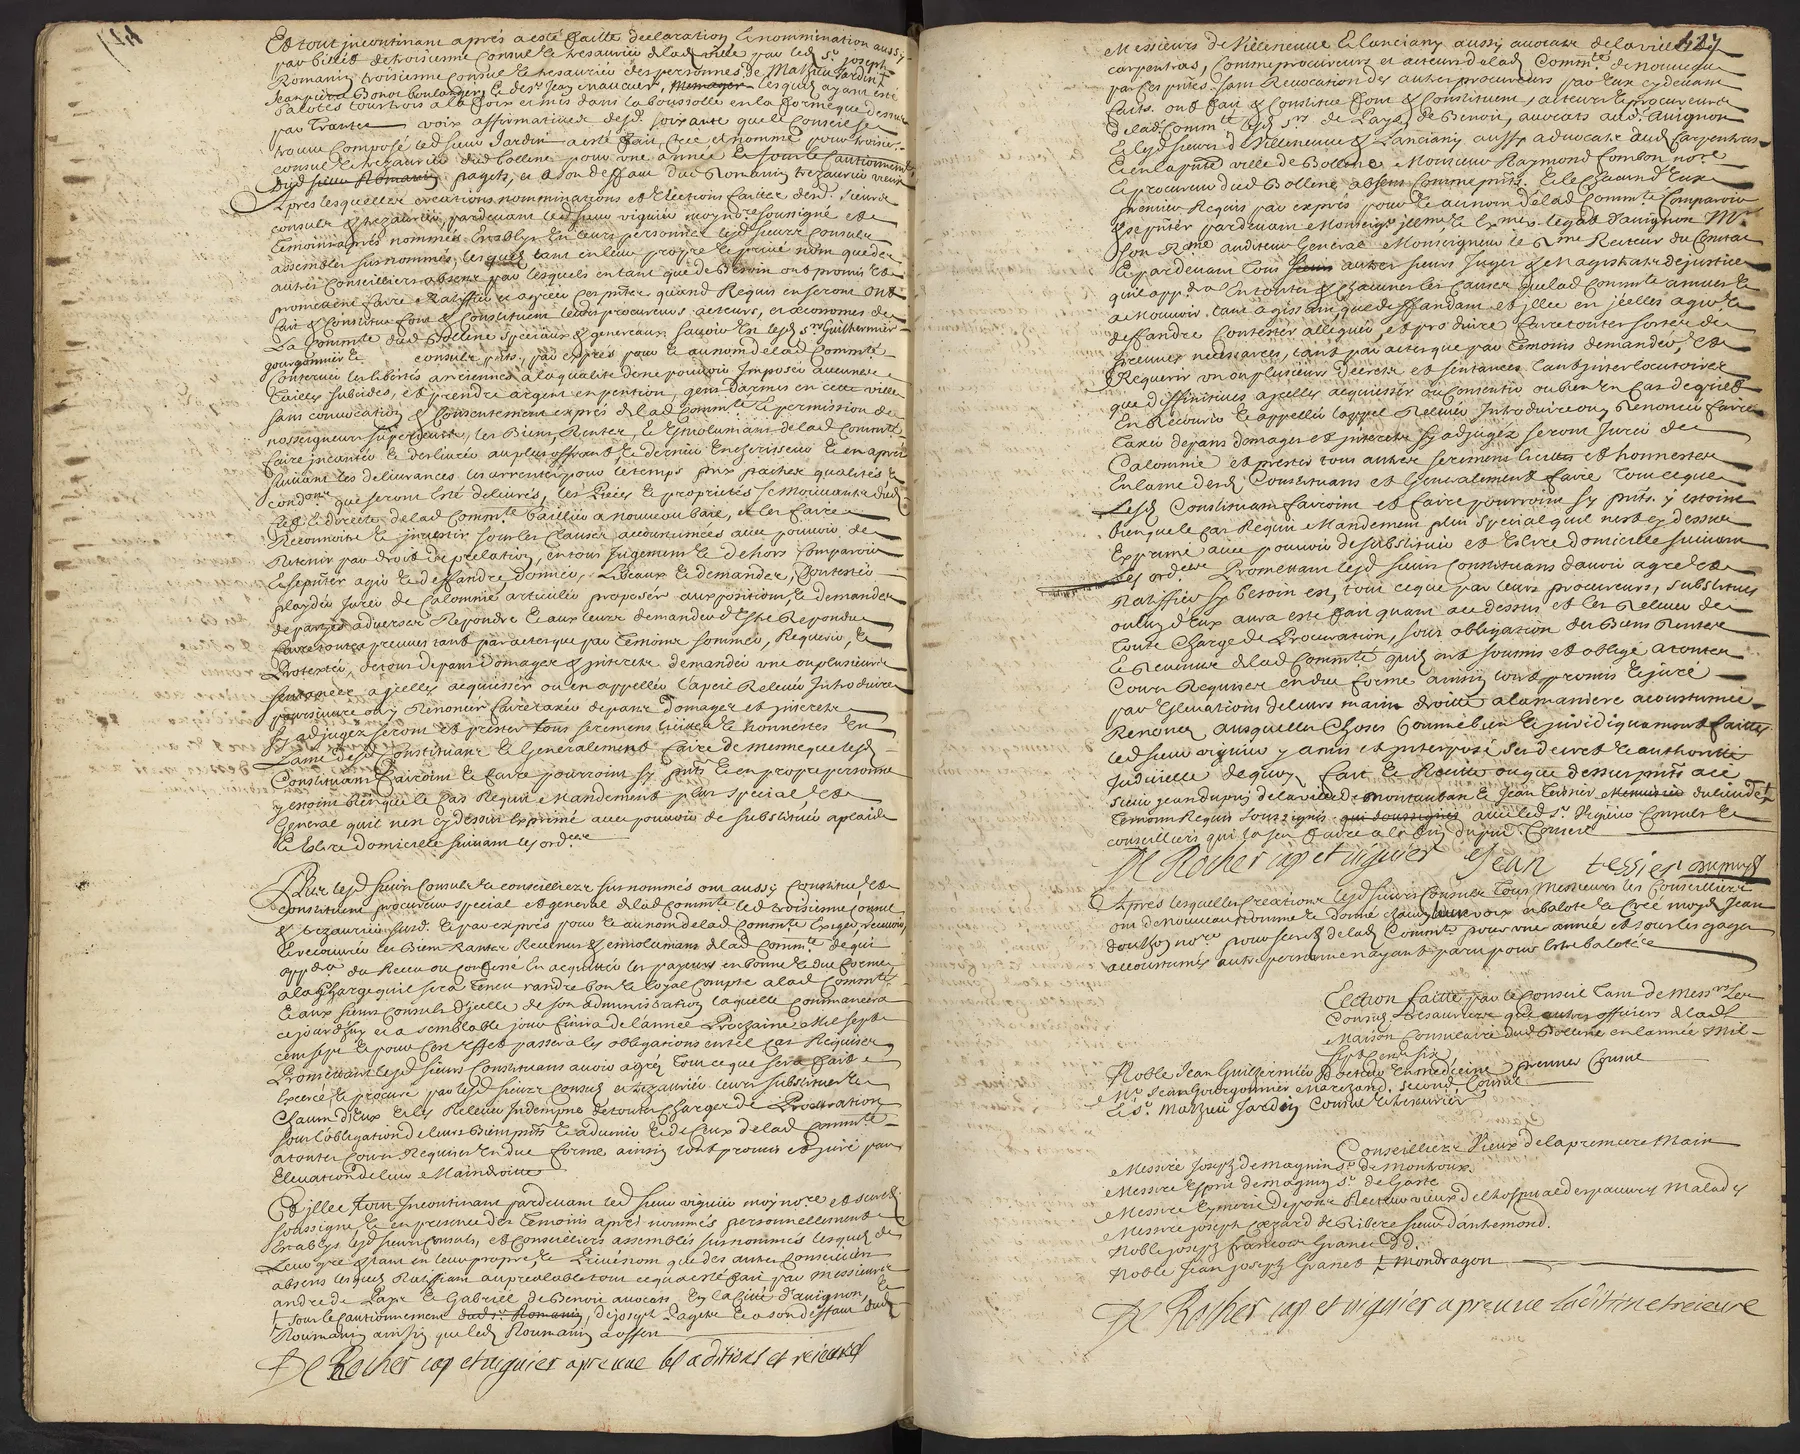 Et tout incontinant aprés a esté faitte declaration & nommination aussy
par billets de troisieme Consul & tresaurier de lad ville par led Sr. Joseph
Romanin troisieme Consul & tresaurier des personnes de Mathieu Jardin +
lesquels ayant esté
balotés tous trois a la foix et mis dans la boussolle en la forme que dessus
par trante voix affirmatives desd. soixante que le Conseil se
trouve composé led sieur Jardin a esté fait, créé, et nommé pour troisie.
consul & trezaurier dud bollene pour une année & sous le cautionnement
dud sieur Romanin pagets, et a son deffaut dud Romanin trezaurier vieux
Apres lesquelles creations nominations et Elections faittes desd. sieurs
consuls & trezaurier, pardevant led sieur viguier moy nore. soussigné et
temoins aprés nommés Establys En leurs personnes lesd sieurs Consuls
assemblés susnommés, lesquels tant en leur propre & privé nom que des
autres conseilliers absens par lesquels en tant que de besoin ont promis et
promettent faire Ratiffier et agreer ces pntes. quand Requis en seront ont
fait & Constitué font & Constituent leurs procureurs acteurs, et œconomes de
La Commté. dud Bollene speciaux & generaux savoir Est lesd srs Guilhermier
gourgonnier & consuls pnts. par exprés pour & au nom de lad Commté
Conserver les libertés anciennes a la qualité de ne pouvoir Imposer aucunes
tailles subcides, et prendre argent en pention, gens d'armes en cette ville
sans convocation & Consentement exprés de lad Commté & permission de
nosseigneurs superieurs, les Biens, Rentes, & Esmolumans de lad Commté
faire incanter & deslivrer au plus offrant & dernier Encherisseur & en aprés
suivant les delivrances les arrenter pour le temps prix pactes qualités &
condons. que seront Esté delivrés, les Pieces & proprietés se Mouvants dud
fied & directe de lad Commté bailler a nouveau bail, et les faire
Reconnoitre & investir sous les clauses accoustumées avec pouvoir de
Retenir par droit de prelation, en tous Jugements & dehors Comparoir
& se pnter agir & deffandre donner, Libeaux & demander, Contester
playder Jurer de Calomnie articuler proposer aux positions & demandes
des parties adverses Repondre & aux leurs demander d'Estre Repondu
faire toutes preuves tant par actes que par temoins sommer, Requerir, &
Protester, de tous depans domages & interets demander une ou plusieurs
sentances a jcelles acquiesser ou en appeller l'apel Relever Introduire
poursuivre ou y Renoncer faire taxer depans domages et interets
sy adjugez seront et prester tous seremens licittes & honnestes En
l'ame desd Constituans & Generalement faire de mesme que lesd
Constituans fairoint & faire pourroint sy pnts & en propre personne
y estoint bien que le cas Requit Mandement plus special et
General qu'il n'est cy dessus Exprimé avec pouvoir de substituer a plaids
& Eslire domicille suivant les ordces
Plus lesd sieurs Consuls & conseilliers susnommés ont aussy Constitué et
constituent procureur special et general de lad Commté led troisieme consul
& trezaurier susd. & par exprés pour & au nom de lad Commté Exiger, recevoir,
& recouvrer les Biens Rantes Revenus & esmolumans de lad Commté de qui
appdra du Receu ou confessé En acquitter les payeurs en bonne & due forme
a la Charge qu'il sera tenu randre bon & loyal compte a lad Commté
& aux sieurs Consuls d'jcelle de son administration laquelle commancera
ce jourd'huy et a semblable jour finira de l'année Prochaine Mil sept
cens sept & pour c'est Effet passera les obligations en tel cas Requises
Promettants lesd sieurs Constituans avoir agréé tout ce que sera fait
Exercé & procuré par lesd sieurs consuls et trezaurier leurs substitués &
Chacun d'Eux et les Relever Indempne de toutes charges de Procuration
sous l'obligation de leurs Biens pnts & advenir & de Ceux de lad Commté
a toutes Cours Requises en due forme ainsin l'ont promis et juré par
Elevation de leur Main droitte
Et illec tout Incontinant pardevant led sieur viguier moy nore. et secret.
soussigné & en presence des temoins aprés nommés personnellement
Establys lesd sieurs Consuls, et Conseilliers assemblés susnommés lesquels de
Leur gré & tant en leur propre, & Privé nom que des autres Conseilliers
absens lesquels Ratiffiant au prealable tout ce qu'a esté fait par Messieurs
andre de Laye & Gabriel de Benoit avocats En la Cité d'avignon, &
+ sous le cautionnement dud sr. Romanin, de joseph Pagets & a son deffaut dud
Roumanin ainsin que led Roumanin a offert
De Rocher cap et viguier apreuve les aditions et reieures
427
Messieurs de Villeneuve & lanciany aussy avocats de la ville de
carpentras, Comme procureurs et acteurs de lad Commté. de nouveau
par ces pntes. sans Revocation des autres procureurs par Eux cy devant
faits. ont fait & Constitué font & Constituent, acteurs & procureurs
de lad. Commté lesd srs de Laye, de Benoit, avocats aud. avignon
& lesd sieurs de Villeneuve & Lanciany aussy advocats aud Carpentras
& en la pnte ville de Bollene Monsieur Raymond Combon nore
& procureur dud Bollene absens Comme pnts. & le Chacun d'Eux
premier Requis par exprés pour & au nom de lad Commté Comparoir
& se pnter pardevant Monseigr jllme. & Exme. legat d'avignon Mr.
son Rme. auditeur General Monseigneur le Rme Recteur du Comtat
& pardevant tous sieurs autres sieurs Juges & Magistrats de justice
qu'il appdra En toutes & Chaunes les Causes que lad Commté a meues &
a Mouvoir, tant agissant, que deffandant et jllec en jcelles agir &
deffandre Contester alleguer, et produire faire toutes sortes de
preuves necessaires, tant par actes que par temoins demander, et
Requerir un ou plusieurs decrets et sentances tant interlocutoires
que diffinitives a jcelles acquiesser ou Consentir ou bien En Cas de grief
En Recourir & appeller l'appel Relever Introduire ou y Renoncer faire
taxer depans domages et interets sy adjugez seront Jurer de
Calomnie et prester tous autres seremens licittes et honnestes
En l'ame desd Constituans et Generalement faire tout ce que
Lesd Constituans fairoint et faire pourroint sy pnts. y estoint
bien que le cas Requit Mandement plus special qu'il n'est cy dessus
Exprimé avec pouvoir de substituer et Eslire domicille suivant
les ordces Promettans lesd sieurs constituans d'avoir agréé et
Ratiffier sy besoin est, tout ce que par leurs procureurs, substitués
ou l'un d'Eux aura esté fait quant au dessus et les Relever de
toute Charge de Procuration, sous obligation des Biens Rentes
& Revenus de lad Commté qu'ils ont soumis et obligé a toutes
Cours Requises en due forme ainsin l'ont promis & juré
par Eslevations de leurs mains droites a la maniere accoustumée
Renoncé ausquelles Choses Comme bien & juridiquement faittes
led sieur viguier y a mis et interposé son decret & authorité
Judicielle de quoy fait & Recitté ou que dessus pnts a ce
sieur jean dupuy de la ville de montauban & Jean Teissier Menuisier dud lieu de +
temoins Requis soussignés qui soussignés avec led sr. Viguier Consuls &
conseilliers qui la seu faire a la fin du pnt. Conseil
De Rocher cap et viguier Jean tessier dupuy
Aprés lesquelles Creations lesd sieurs Consuls tous Messieurs les Conseilliers
ont de nouveau nommé & donné chacun leur voix et baloté & Créé moy Jean
douthoy nore pour secret de lad Commté pour une année et sous les gages
accoustumés autre personne n'ayant paru pour Estre balotée
Election faitte par le Conseil tant de Messrs Les
Consuls tresauriers que autres officiers de lad
Maison Consulaire dud Bollene en l'année Mil
sept cens six
Noble Jean Guilhermier Docteur En medicine premier Consul
Mr. Jean Gourgonnier Marchand, second Consul
& Sr. Mathieu Jardin Consul & thesaurier
Conseilliers Vieux de la premiere Main
Messire Joseph de magnin sr. de montroux.
Messire Esprit de magnin sr. de Gaste
Messire Eymeric de poise Recteur vieux de l'hospital des pauvres Malades
Messire joseph Cezard de Ribere sieur d'antremond.
Noble joseph francois Granet DD.
Noble Jean joseph Granet + Mondragon
De Rocher cap et viguier apreuve ladition et reieure